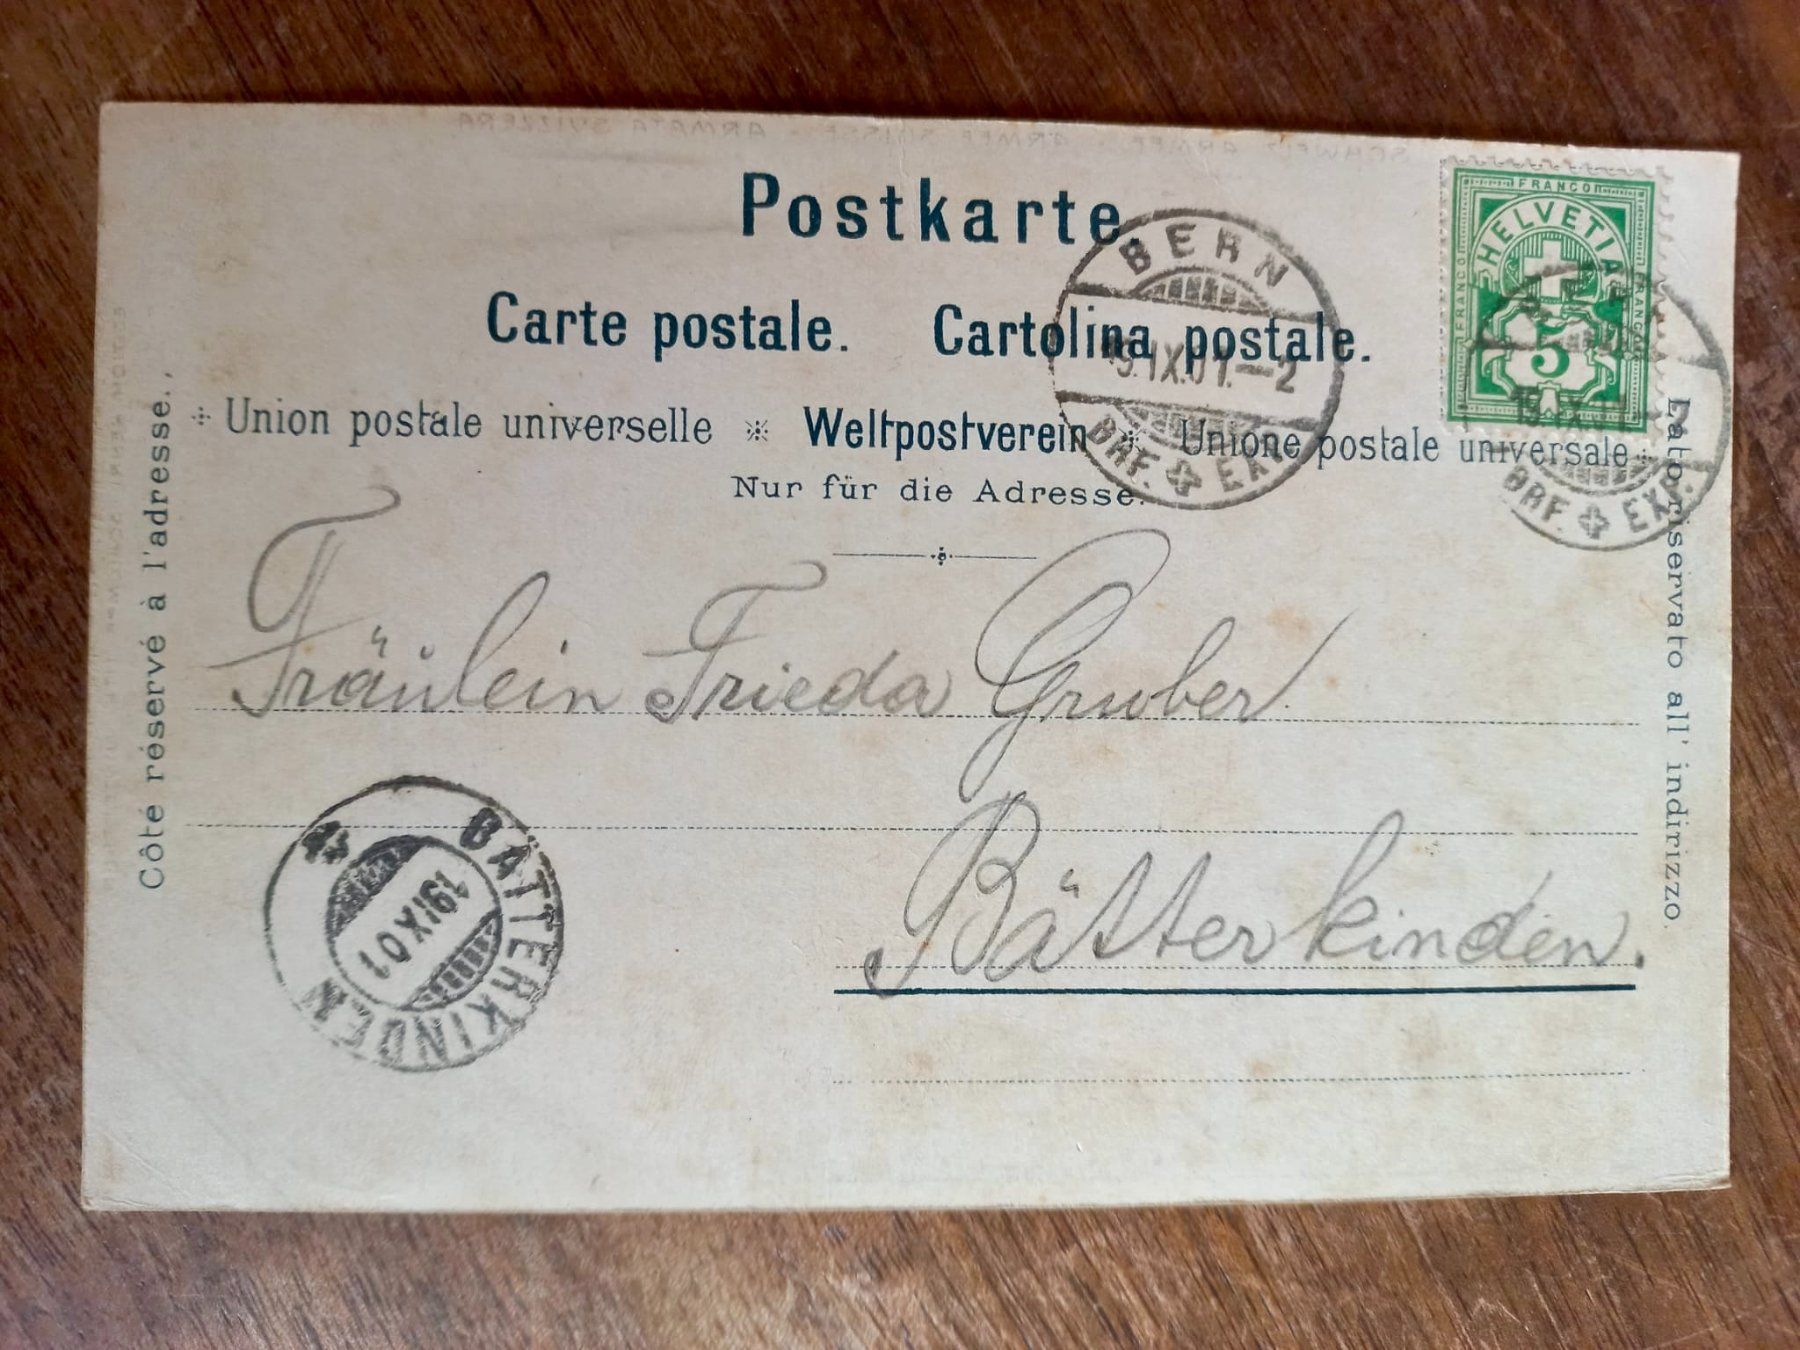 Postkarte.
Carte postale. Cartolina postale.
Union postale universelle Weltpostverein Unione postale universale
Nur für die Adresse.
Côté réservé à l'adresse.
Lato riservato all' indirizzo.
FRANCO
FRANCO
FRANCO
HELVETIA
5
BERN
19.IX.01.–2
BRF. EXP.
BRF. EXP.
Fräulein Frieda Gruber
Bätterkinden.
BÄTTERKINDEN
19 IX 01
SCHWEIZ. ARMEE - ARMÉE SUISSE - ARMATA SVIZZERA